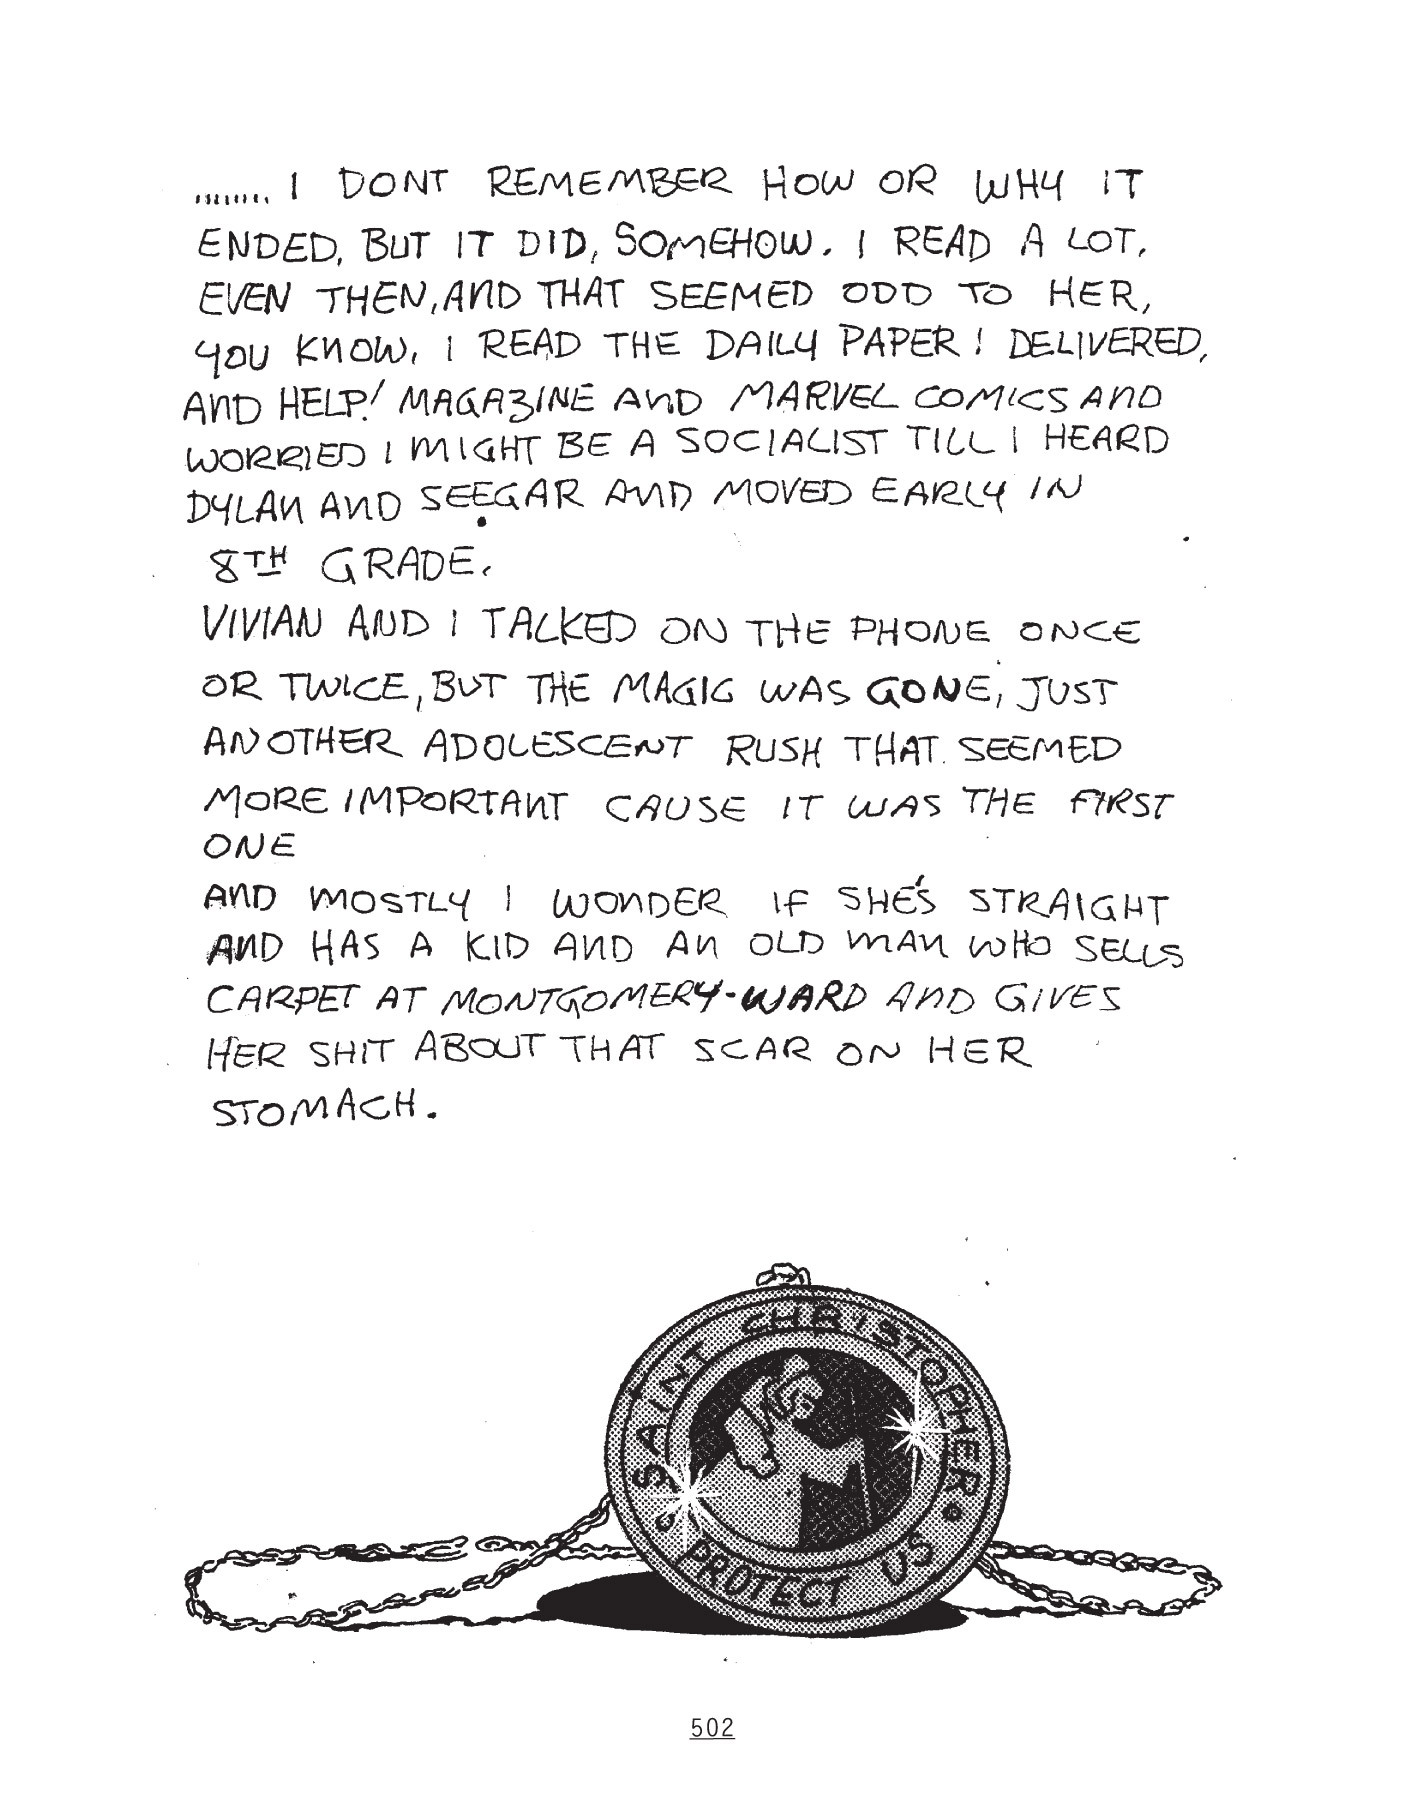 ........ I DONT REMEMBER HOW OR WHY IT
ENDED, BUT IT DID, SOMEHOW. I READ A LOT,
EVEN THEN, AND THAT SEEMED ODD TO HER,
YOU KNOW, I READ THE DAILY PAPER! DELIVERED,
AND HELP! MAGAZINE AND MARVEL COMICS AND
WORRIED I MIGHT BE A SOCIALIST TILL I HEARD
DYLAN AND SEEGAR AND MOVED EARLY IN
8TH GRADE.
VIVIAN AND I TALKED ON THE PHONE ONCE
OR TWICE, BUT THE MAGIC WAS GONE, JUST
ANOTHER ADOLESCENT RUSH THAT SEEMED
MORE IMPORTANT CAUSE IT WAS THE FIRST
ONE
AND MOSTLY I WONDER IF SHE'S STRAIGHT
AND HAS A KID AND AN OLD MAN WHO SELLS
CARPET AT MONTGOMERY-WARD AND GIVES
HER SHIT ABOUT THAT SCAR ON HER
STOMACH.
SAINT CHRISTOPHER
PROTECT US
502